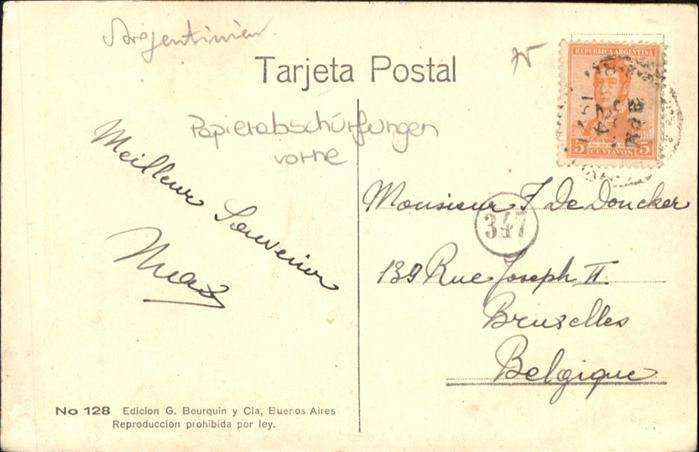 Argentinien
Tarjeta Postal
REPUBLICA ARGENTINA
5 CENTAVOS 5
Papierabschürfungen
vorne
Meilleur Souvenir
Monsieur F De Doncker
347
139 Rue Joseph II.
Bruxelles
Belgique
No 128 Edicion G. Bourquin y Cia, Buenos Aires
Reproduccion prohibida por ley.